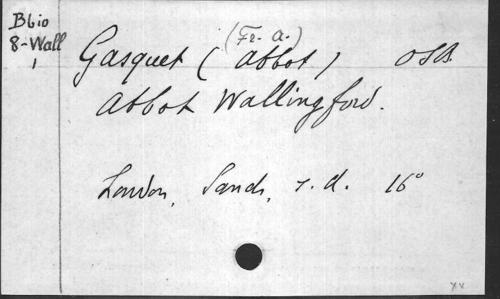 Bbio
8-Wall
1
(Fr. a.)
Gasquet (abbot) OSB
Abbot Wallingford.
London, Sands, s.d. 16°
XV